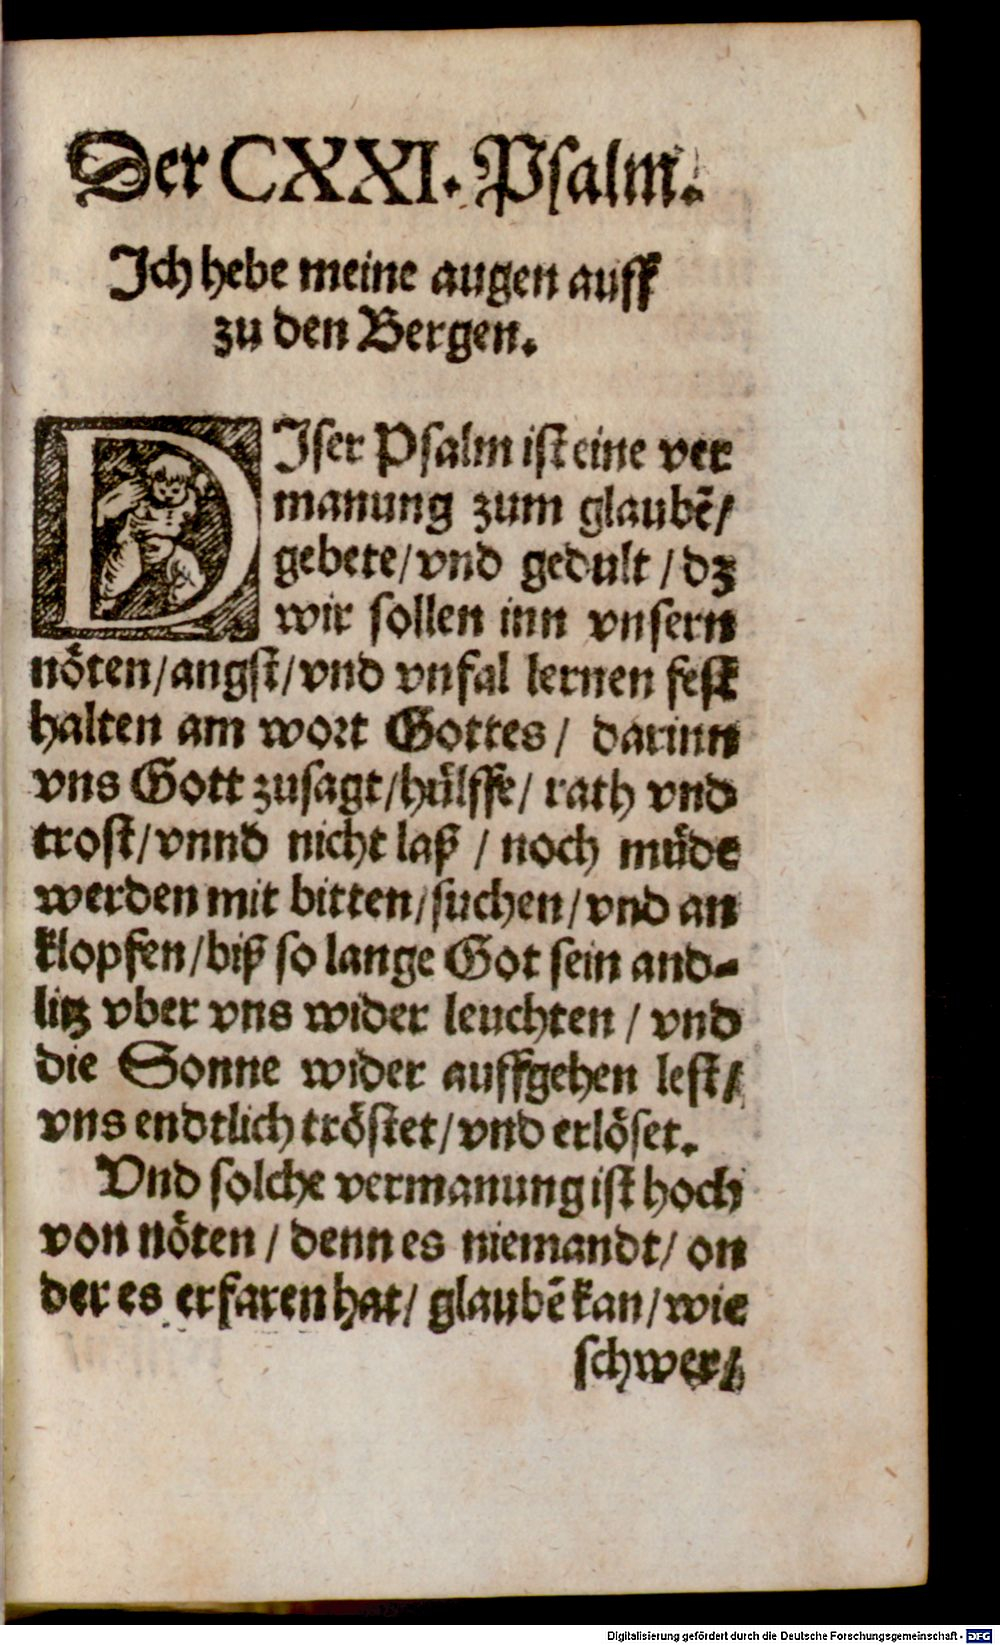 Der CXXI. Psalm.
Ich hebe meine augen auff
zu den Bergen.
DIser Psalm ist eine ver
manung zum glaubẽ/
gebete/vnd gedult / dz
wir sollen inn vnsern
nöten/angst/vnd vnfal lernen fest
halten am wort Gottes/ darinn
vns Gott zusagt/hülffe/ rath vnd
trost/vnnd nicht laß / noch müde
werden mit bitten/suchen/vnd an
klopfen/biß so lange Got sein and-
litz vber vns wider leuchten / vnd
die Sonne wider auffgehen lest/
vns endtlich tröstet/vnd erlöset.
Vnd solche vermanung ist hoch
von nöten / denn es niemandt/ on
der es erfaren hat/ glaubẽ kan/wie
schwer/
Digitalisierung gefördert durch die Deutsche Forschungsgemeinschaft - DFG